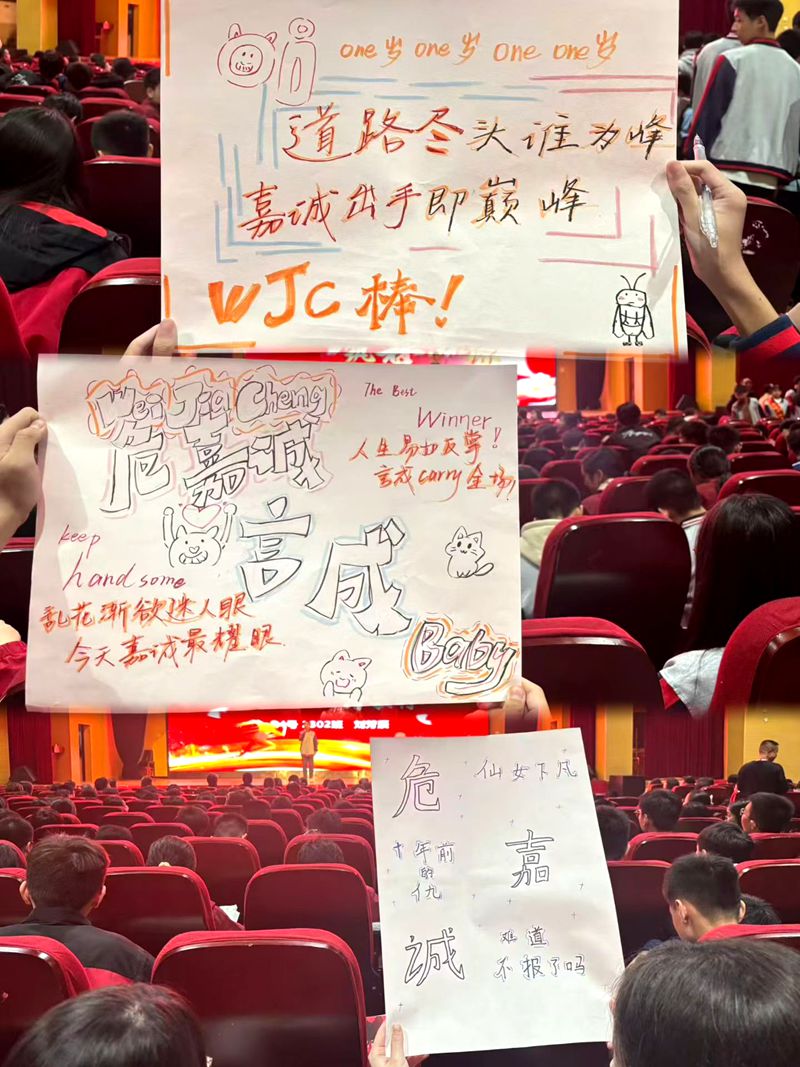 one岁 one岁 one one岁
道路尽头谁为峰
嘉诚出手即巅峰
WJC棒!
Wei Jia Cheng
危嘉诚
The Best
Winner
人生易如反掌!
言成carry全场!
言成
keep
handsome
乱花渐欲迷人眼
今天嘉诚最耀眼
Baby
302班
危
仙女下凡
十年前
的
仇
嘉
诚
难道
不报了吗